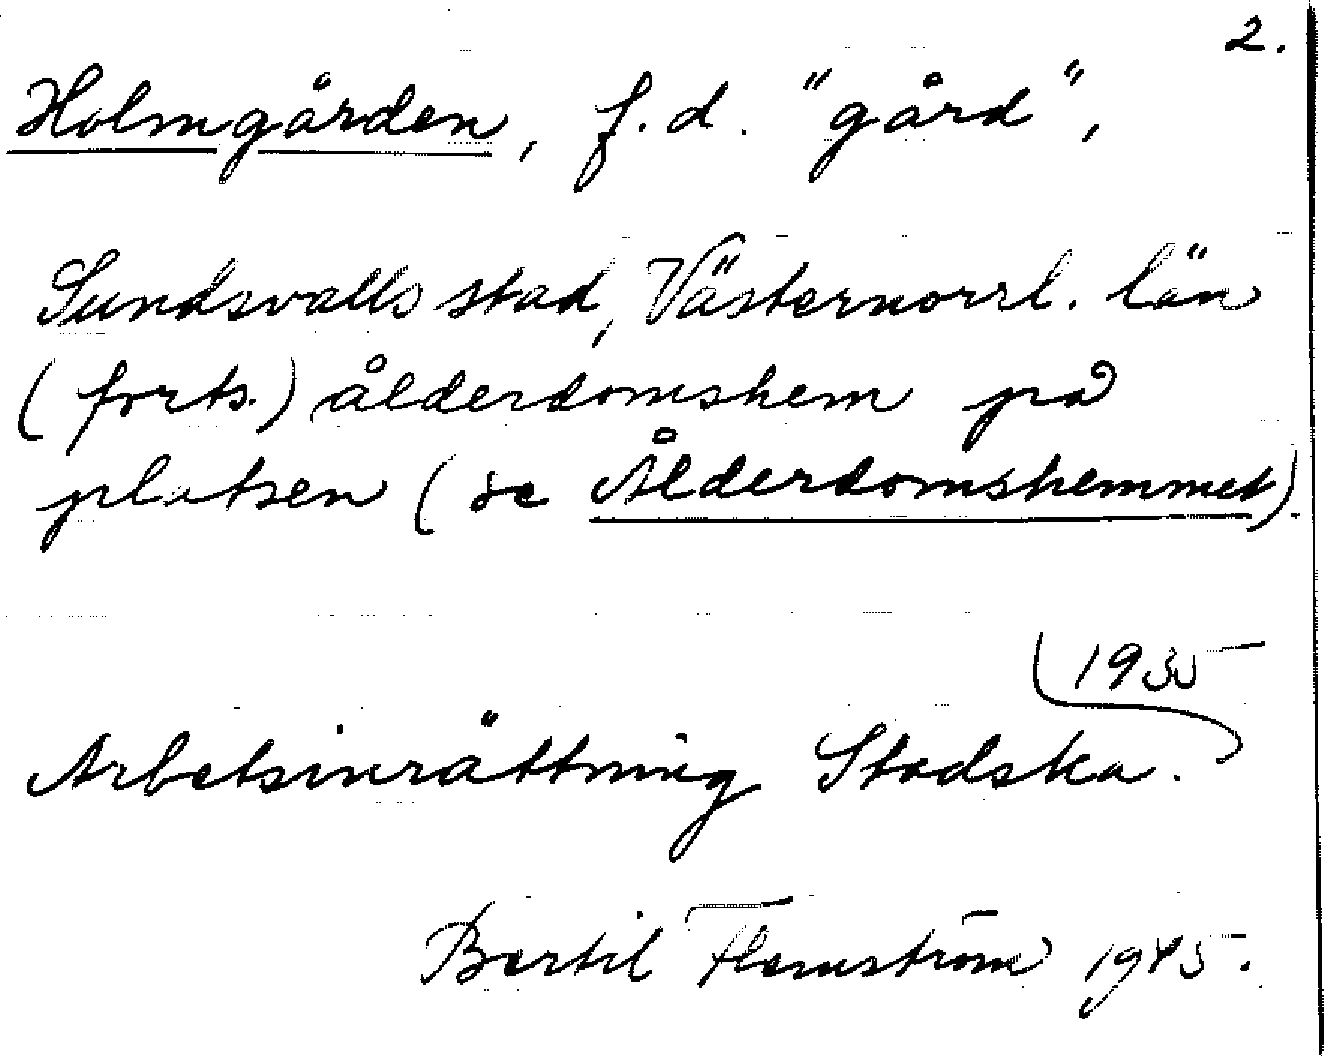 2.
Holmgården, f.d. "gård",
Sundsvalls stad, Västernorrl. län
(forts.) ålderdomshem på
platsen (se Ålderdomshemmet).
1935
Arbetsinrättning Stadska.
Bertil Flemström 1945.